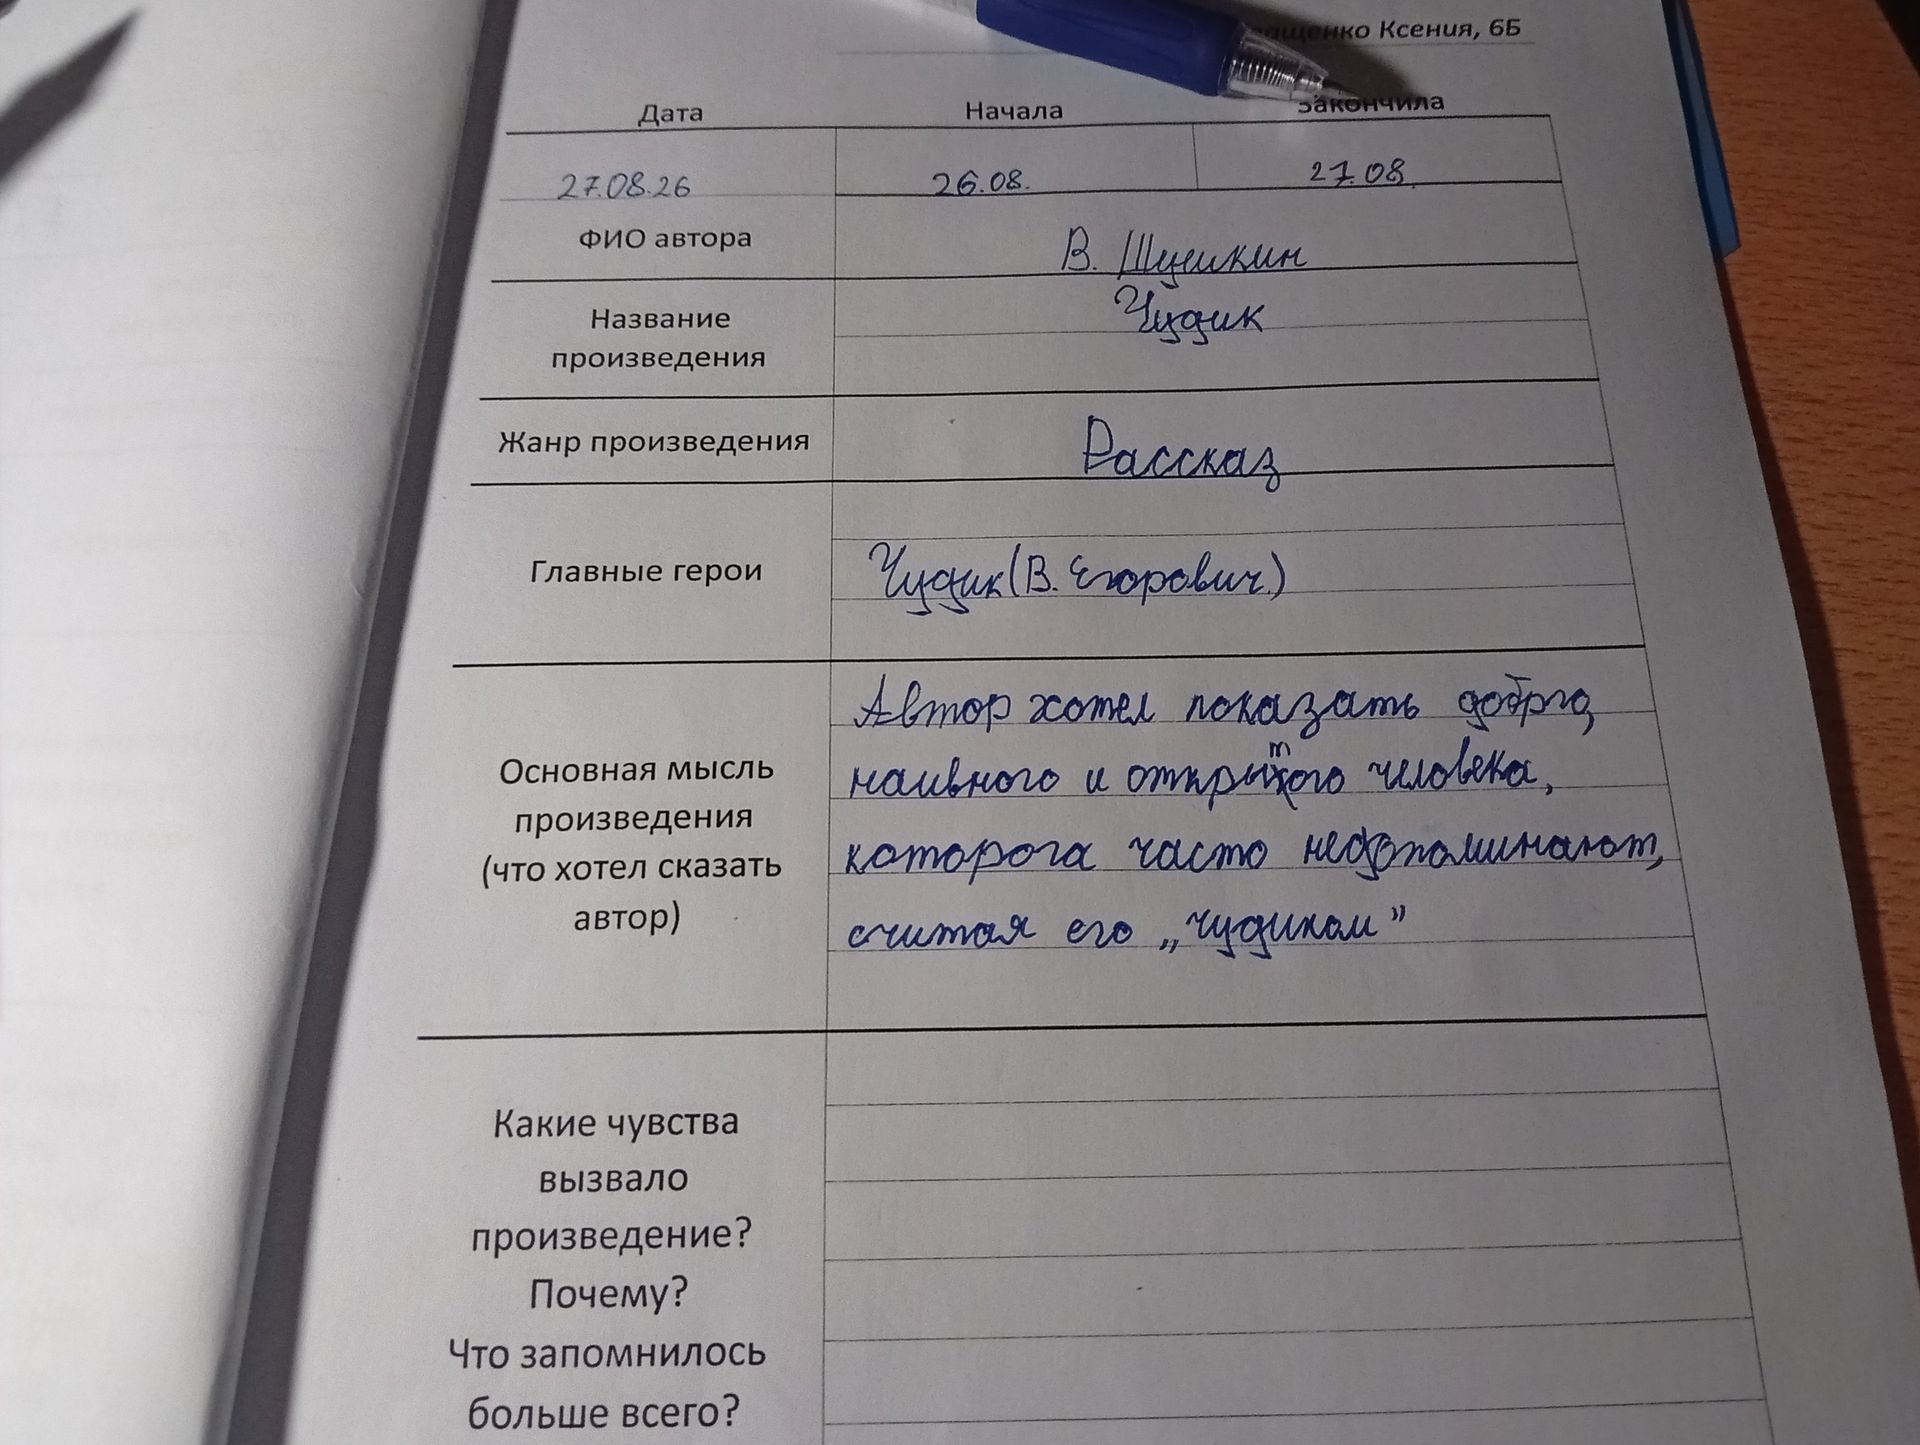 Ксения, 6Б
Дата Начала Закончила
27.08.26 26.08. 27.08.
ФИО автора В. Шукшин
Название Чудик
произведения
Жанр произведения Рассказ
Главные герои Чудик (В. Егорович.)
Основная мысль
произведения
(что хотел сказать
автор)
Автор хотел показать доброго,
наивного и открытого человека,
которога часто недопоминают,
считая его „чудиком”
Какие чувства
вызвало
произведение?
Почему?
Что запомнилось
больше всего?